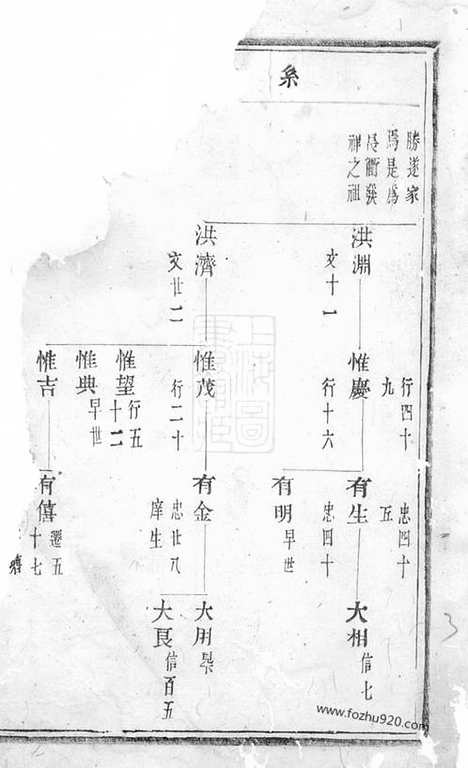 系
勝遂家
焉是爲
祥之祖
洪淵
文十一
行四十
九
惟慶
行十六
忠四十
五
有生
忠四十
有明
早世
大相
信七
洪濟
文廿二
惟茂
行二十
有金
忠廿八
庠生
大用
大良
信百五
惟望
行五
十二
惟典
早世
惟吉
有僖
十七
www.fozhu920.com